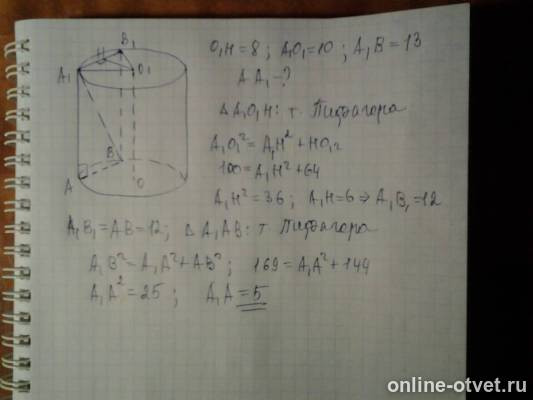 O₁H = 8 ; A₁O₁ = 10 ; A₁B = 13
AA₁ - ?
△A₁O₁H : т. Пифагора
A₁O₁² = A₁H² + HO₁²
100 = A₁H² + 64
A₁H² = 36 ; A₁H = 6 ⇒ A₁B₁ = 12
A₁B₁ = AB = 12 ; △A₁AB : т. Пифагора
A₁B² = A₁A² + AB² ; 169 = A₁A² + 144
A₁A² = 25 ; A₁A = 5
B₁
H
A₁
O₁
B
A
O
online-otvet.ru